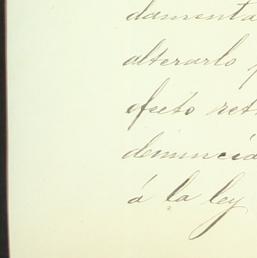 damenta
alterarlo p
efecto ret
denuncia
á la ley